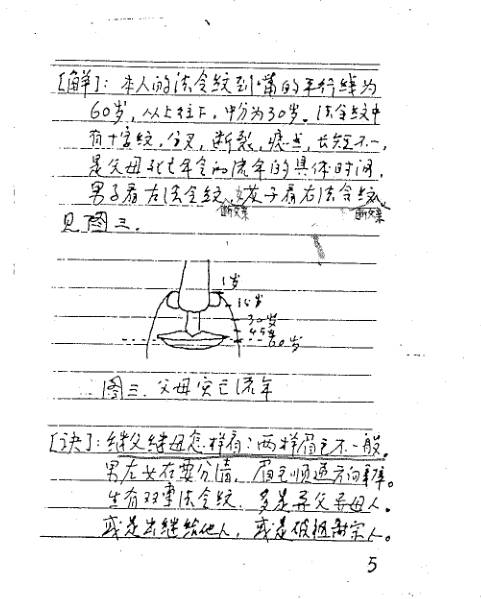 [解]：本人的法令纹到嘴的平行线为
60岁，从上往下，中分为30岁。法令纹中
有十字纹，分叉，断裂，痣点，长短不一，
是父母死亡年令和流年的具体时间，
男子看左法令纹，女子看右法令纹，
断父亲 断父亲
见图三.
1岁
15岁
30岁
45岁
60岁
图三. 父母实亡流年
[诀]：继父继母怎样看：两样眉毛不一般。
男左女右要分清，眉毛顺逆方向辨。
生有双重法令纹，多是异父异母人。
或是出继给他人，或是破祖离宗人。
5